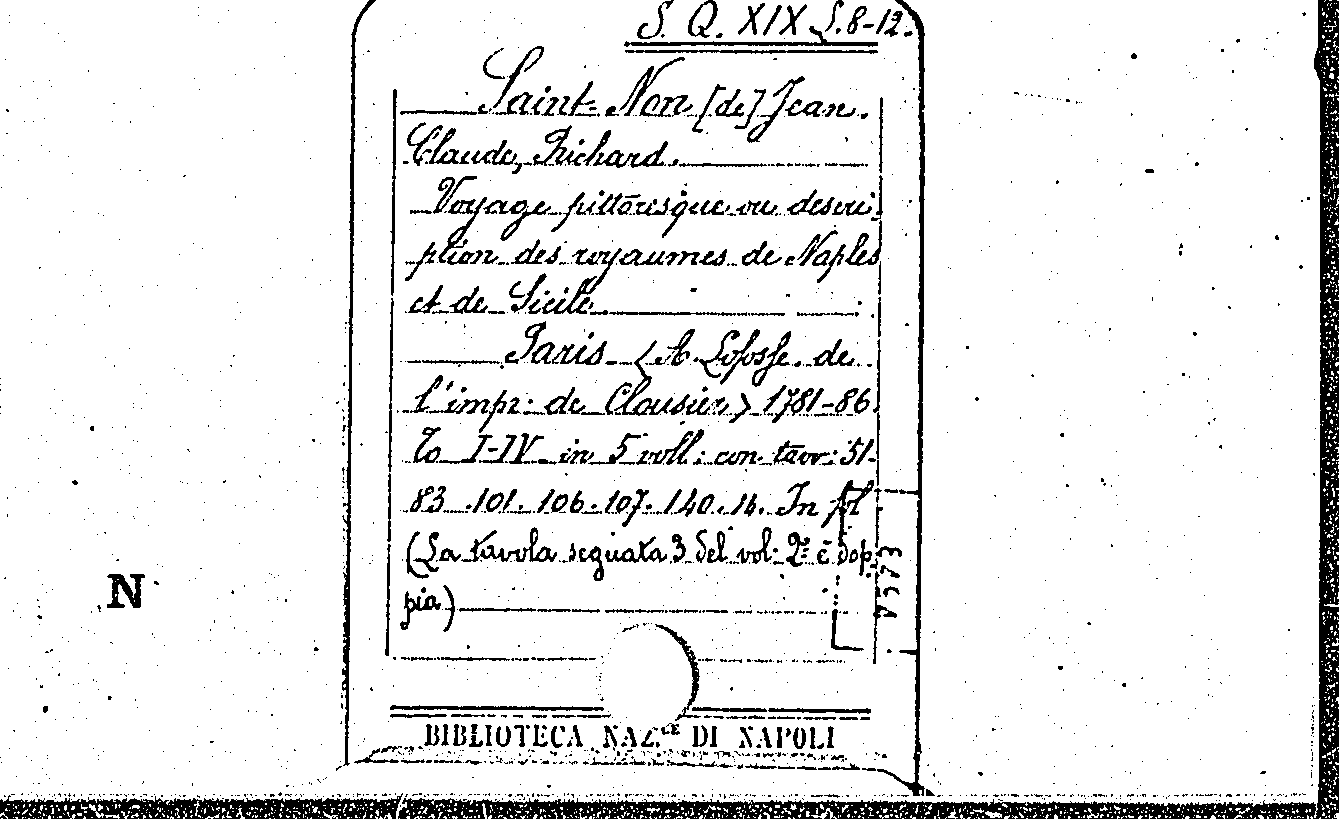 S. Q. XIX L. 8-12.
Saint-Non [de] Jean.
Claude, Richard.
Voyage pittoresque ou descri-
ption des royaumes de Naples
et de Sicile.
Paris (A. Lofosse. de
l'impr: de Clousier) 1781-86.
To I-IV in 5 voll: con tavv: 51-
83.101.106.107.140.14. In fol.
(La tavola seguata 3 del vol: 2º è dop-
pia)
N
BIBLIOTECA NAZ.LE DI NAPOLI